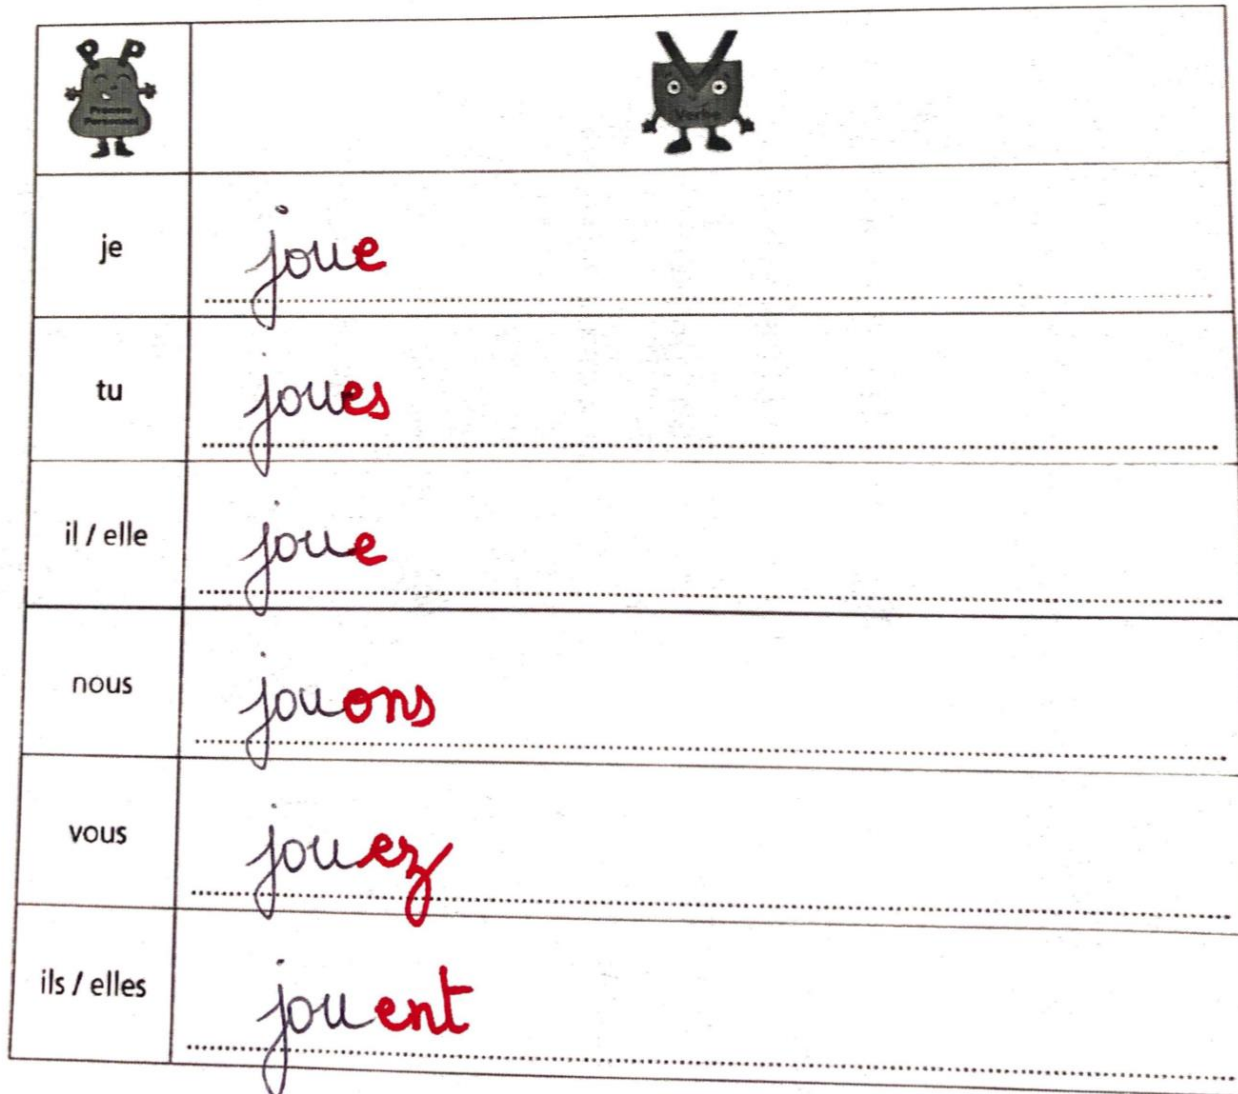 PP
Pronom
Personnel
V
Verbe
je joue
tu joues
il / elle joue
nous jouons
vous jouez
ils / elles jouent